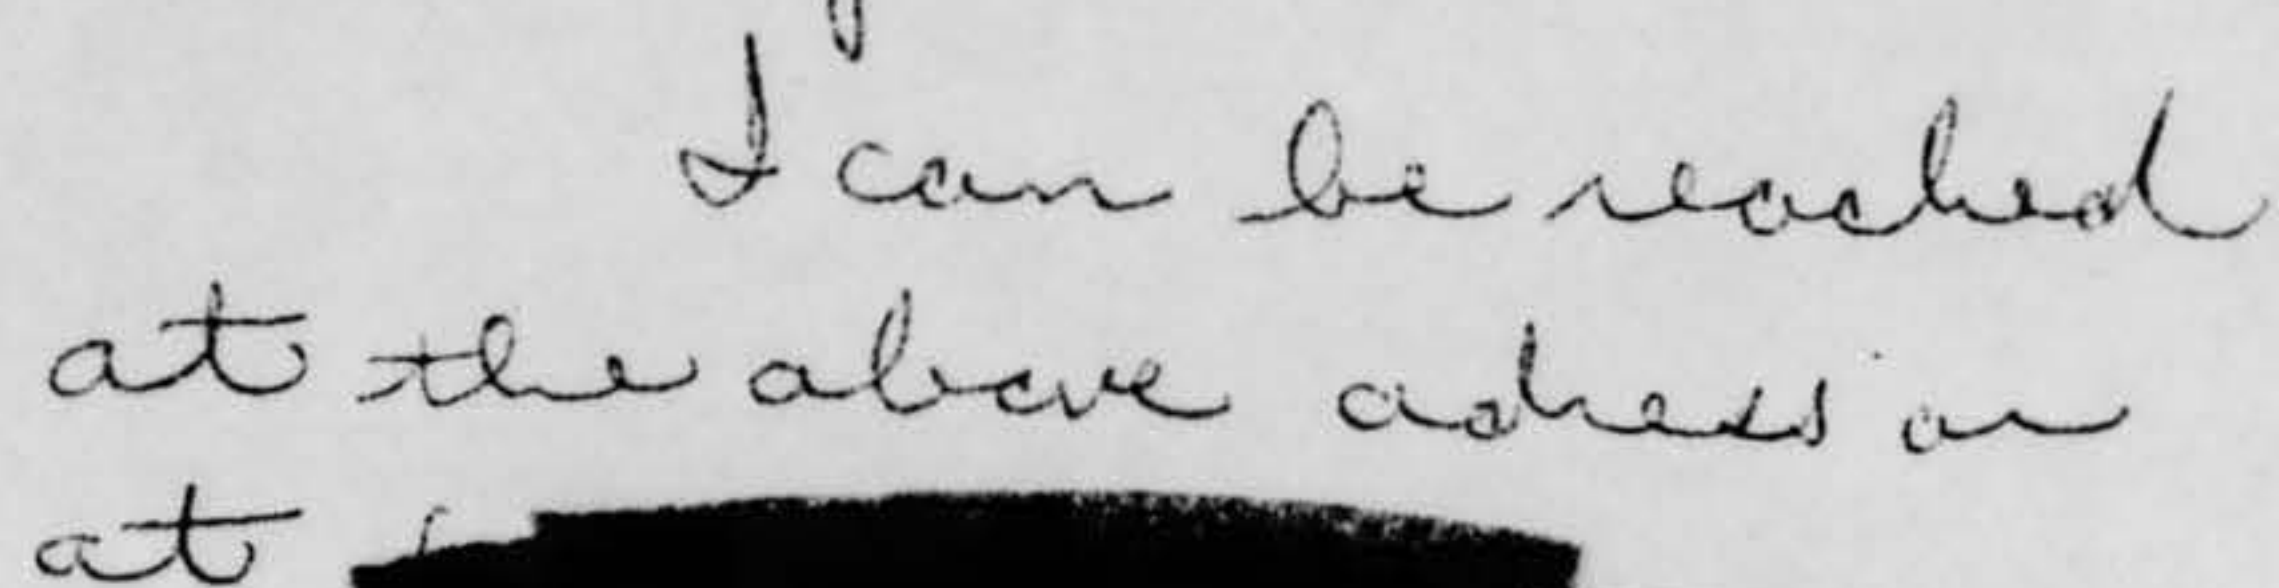 I can be reached
at the above adress or
at